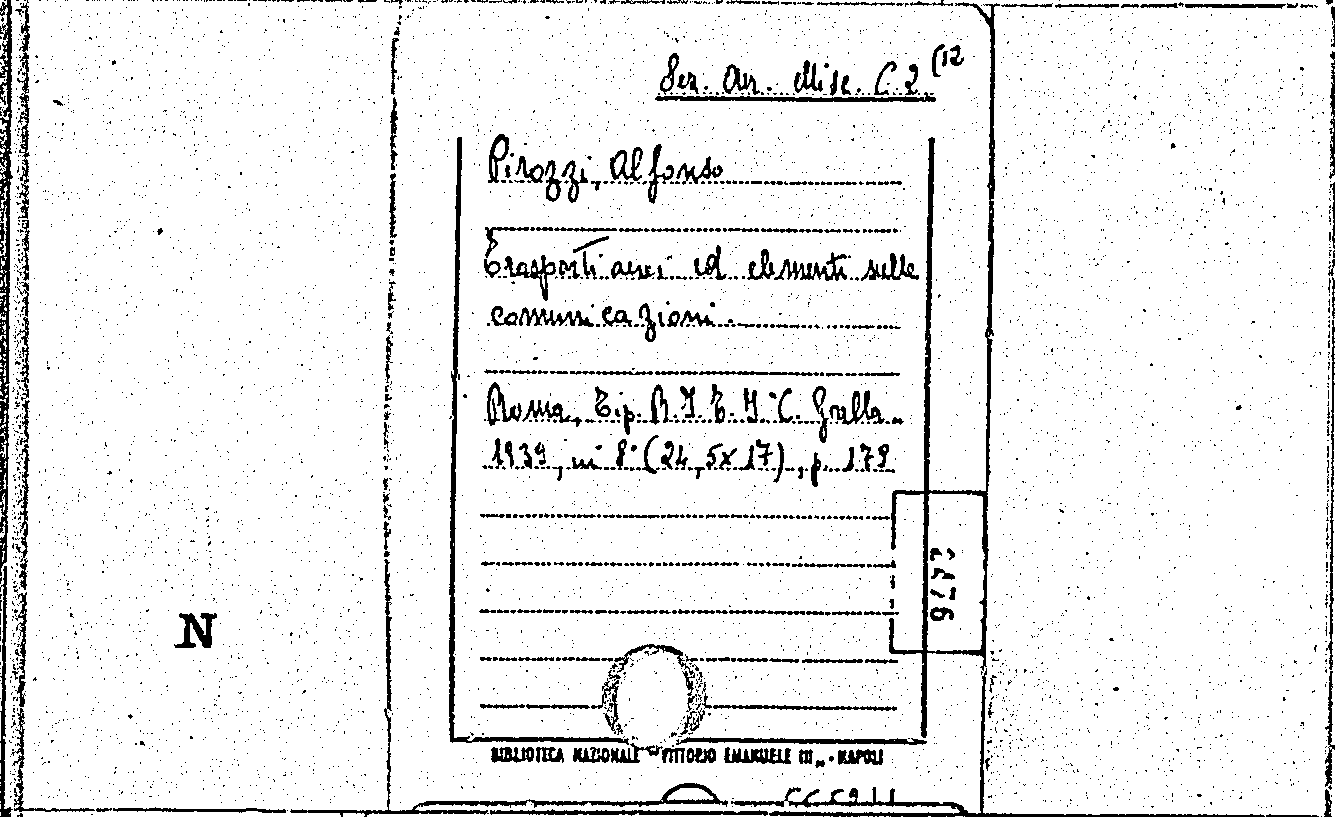 Sez. Aer. Misc. C 2 (12
Pirozzi, Alfonso
Trasporti aerei ed elementi sulle
comunicazioni.
Roma, Tip. R.I.T.I. C. Grella
1939, in 8° (24,5x17), p. 179
N
BIBLIOTECA NAZIONALE "VITTORIO EMANUELE III„ - NAPOLI